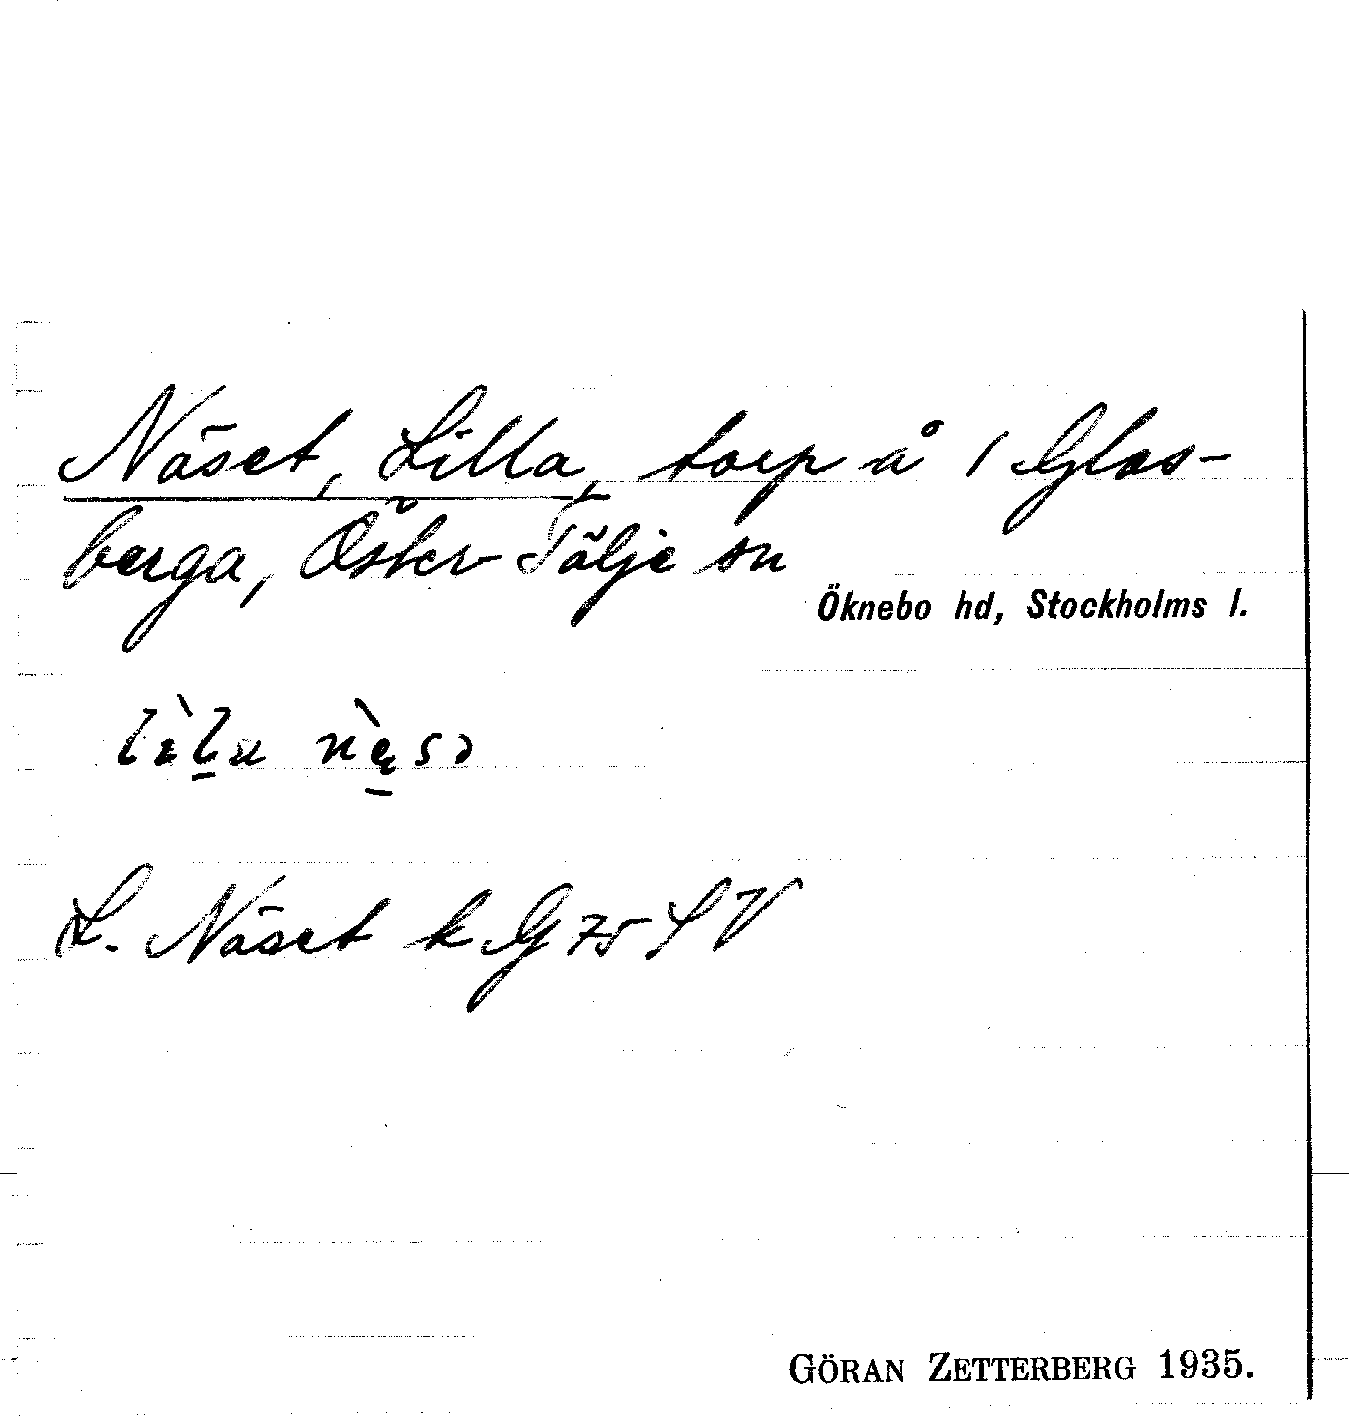 Näset, Lilla, torp å 1 Glas-
berga, Öster-Tälje sn
Öknebo hd, Stockholms l.
L. Näset k G 75 S V
GÖRAN ZETTERBERG 1935.